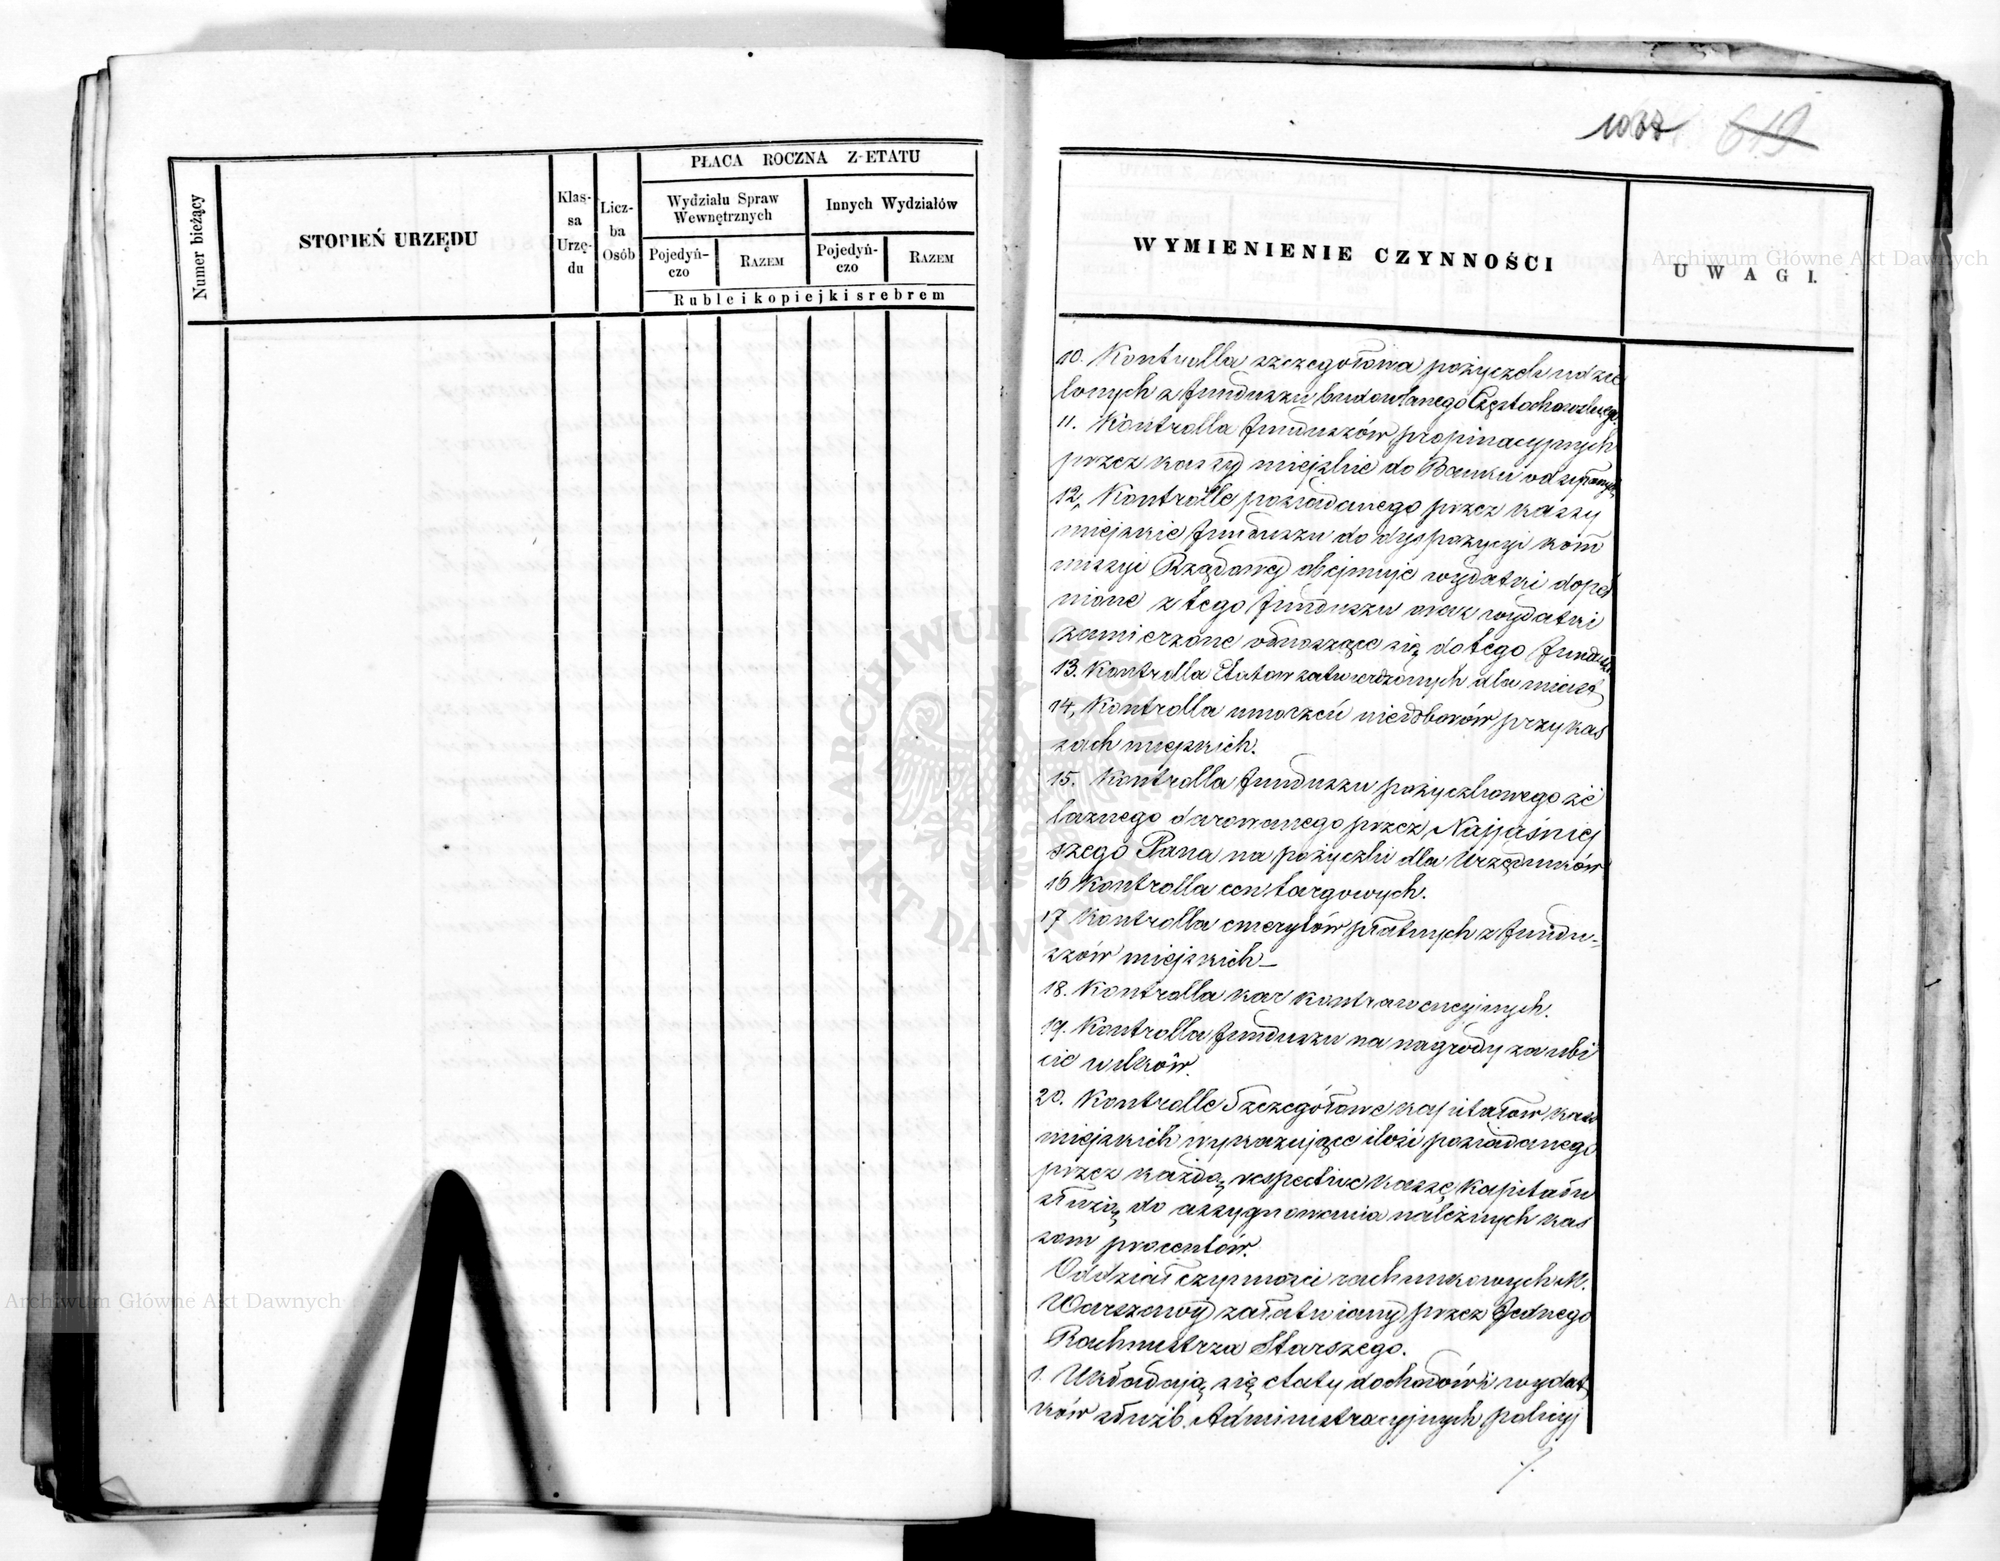 PŁACA ROCZNA Z ETATU
Numer bieżący
STOPIEŃ URZĘDU
Klas-
sa
Urzę-
du
Licz-
ba
Osób
Wydziału Spraw
Wewnętrznych
Innych Wydziałów
Pojedyń-
czo
RAZEM
Pojedyń-
czo
RAZEM
Ruble i kopiejki srebrem
619
WYMIENIENIE CZYNNOŚCI
UWAGI.
10. Kontrolla szczegółowa pożyczek udzie
lonych z funduszu budowlanego Częstochowskiego.
11. Kontrolla funduszów propinacyjnych
przez kassy miejskie do Banku odsyłanych
12, Kontrolle posiadanego przez kassy
miejskie funduszu do dyspozycyi Kom
missyi Rządowej obejmuje wydatki dopeł
nione z tego funduszu oraz wydatki
zamierzone odnoszące się do tego funduszu
13. Kontrolla Etatow zatwierdzonych dla miast
14, Kontrolla umorzeń niedoborów przy kas
sach miejskich.
15. Kontrolla funduszu pożyczkowego że
laznego darowanego przez Najjaśniej
szego Pana na pożyczki dla Urzędników
16 Kontrolla cen targowych.
17 Kontrolla emerytów płatnych z fundu-
szów miejskich_
18. Kontrolla kar kontrawencyjnych.
19. Kontrolla funduszu na nagrody za ubi
cie wilków.
20. Kontrolle Szczegółowe kapitałów kass
miejskich wykazujące ilości posiadanego
przez każdą respective kassę kapitału
służą do assygnowania należnych kas
som procentów.
Oddział czynności rachunkowych M.
Warszawy załatwiany przez Jednego
Rachmistrza Starszego.
1. Układają się etaty dochodów i wydat
ków służb. Administracyjnych policyj
./.
Archiwum Główne Akt Dawnych
Archiwum Główne Akt Dawnych
ARCHIWUM GŁÓWNE AKT DAWNYCH